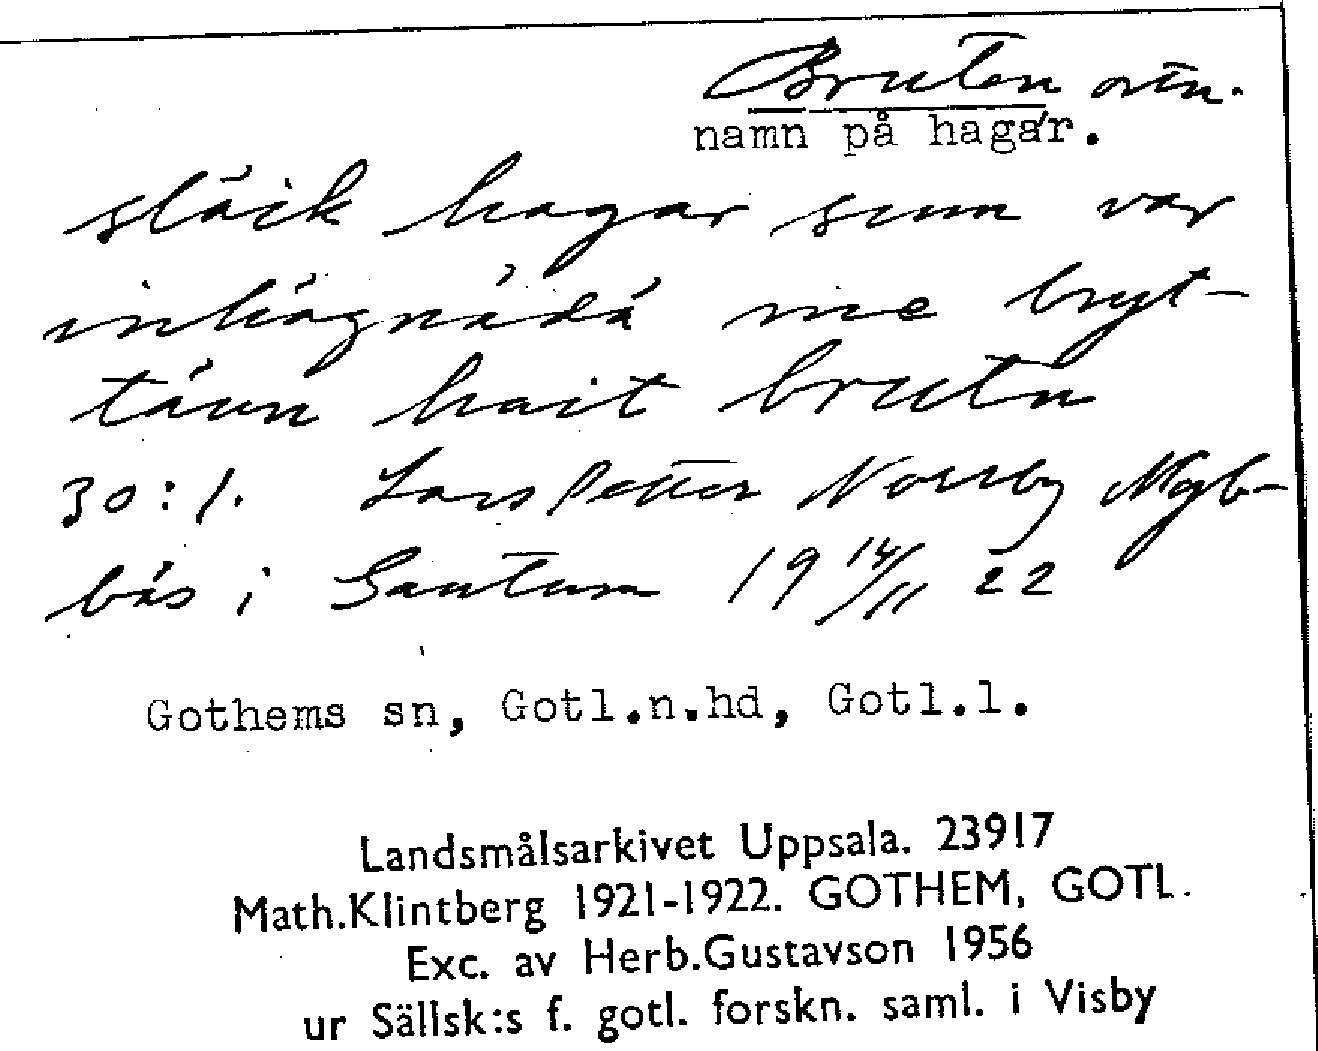 Bruten ortn.
namn på hagar.
slåik hagar sum var
inhägnädä me bryt-
täun hait brutn
30:1. Lars Petter Norrby Myb-
bås i Gautum 19 14/11 22
Gothems sn, Gotl.n.hd, Gotl.l.
Landsmålsarkivet Uppsala. 23917
Math.Klintberg 1921-1922. GOTHEM, GOTL.
Exc. av Herb.Gustavson 1956
ur Sällsk:s f. gotl. forskn. saml. i Visby